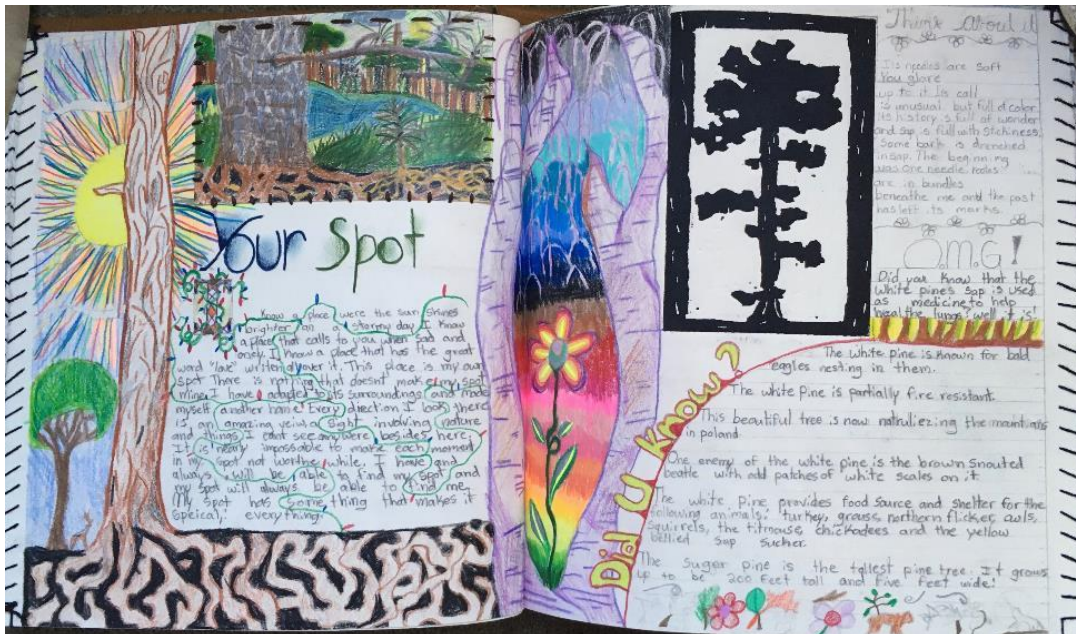 Your Spot
I know a place were the sun shines
brighter on a stormy day I know
a place that calls to you when sad and
lonely. I know a place that has the great
word "love" written all over it. This place is my own
spot There is nothing that doesn't make my spot
mine. I have adapted to its surroundings and made
myself another home. Every direction I look there
is an amazing veiw a sight involving nature
and things I cant see anywere besides here.
It is nearly impossable to make each moment
in my spot not worthe while. I have and
always will be able to find my spot and
my spot will always be able to find me.
My spot has some thing that makes it
speical; everything.
Think About it
Its needles are soft
You glare
up to it Is call
is unusual but full of color
is history is full of wonder
and sap is full with stickiness
Some bark is drenched
in sap. The beginning
was one needle.
are in bundles
beneathe me and the past
has left its marks.
O.M.G!
Did you know that the
White pine's sap is used
as medicine to help
heal the lungs? well it is!
Did U Know?
The white pine is known for bald
eagles nesting in them.
The white pine is partially fire resistant
This beautiful tree is now natruliezing the mountians
in poland
One enemy of the white pine is the brown snouted
beatle with odd patches of white scales on it
The white pine provides food source and shelter for the
following animals: turkey, grouse northern flicker, owls,
squirrels, the titmouse, chickadees and the yellow
bellied sap sucker
The suger pine is the tallest pine tree. It grows
up to be 200 feet tall and five feet wide!